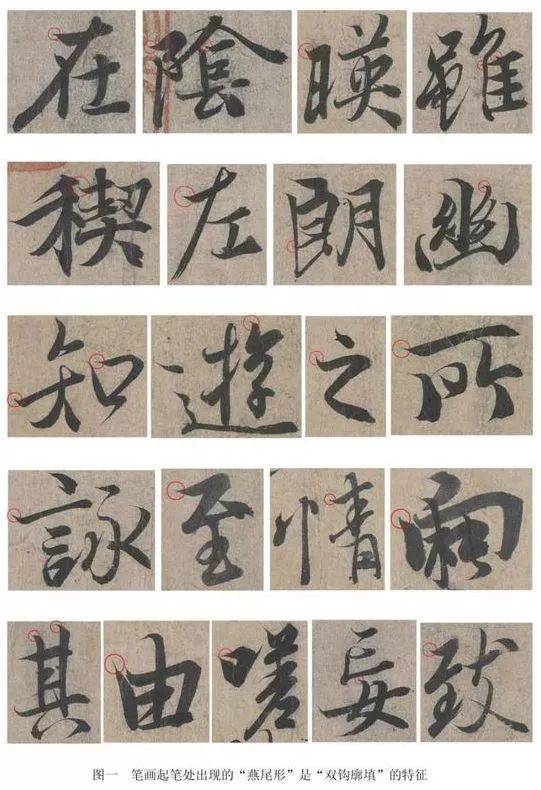 在 陰 暎 雖
稧 左 朗 幽
知 遊 之 所
詠 至 情
其 由 嗟 妄 致
图一 笔画起笔处出现的“燕尾形”是“双钩廓填”的特征